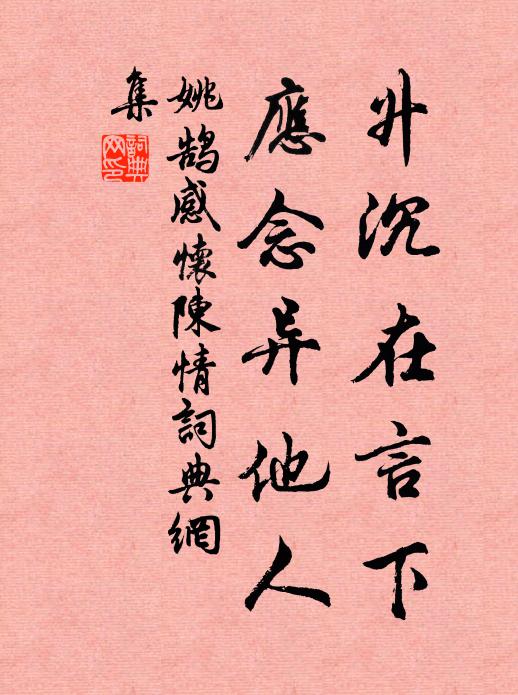 升沉在言下
應念异他人
姚鹄感懷陳情詞典網
集
詞典網印